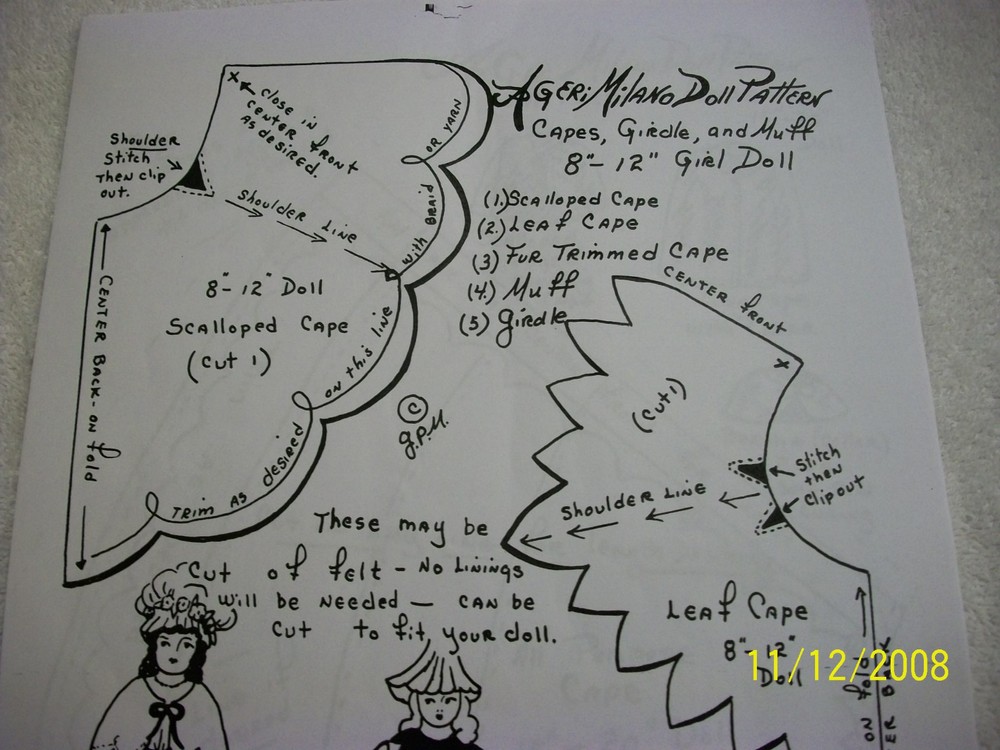 A Geri Milano Doll Pattern
Capes, Girdle, and Muff
8"- 12" Girl Doll
(1.) Scalloped Cape
(2.) Leaf Cape
(3) Fur Trimmed Cape
(4.) Muff
(5) Girdle
x close in
center front
as desired.
Shoulder
Stitch
then clip
out.
Shoulder Line
8"- 12" Doll
Scalloped Cape
(cut 1)
Center Back - on fold
Trim as desired on this line with braid or yarn
© g.P.M.
These may be
cut of felt - No Linings
will be needed — can be
cut to fit, your doll.
center front
x
(cut 1)
Stitch
then
clip out
Shoulder Line
Leaf Cape
8"- 12"
Doll
on fold
11/12/2008